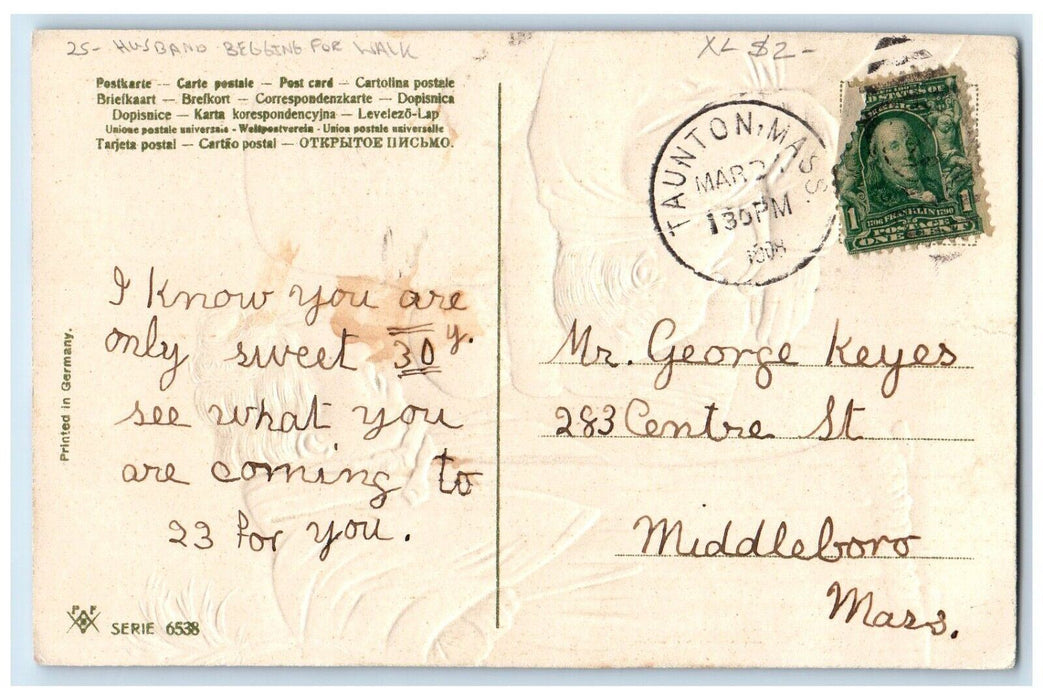 25- HUSBAND BEGGING FOR WALK
XL $2-
Postkarte — Carte postale — Post card — Cartolina postale
Briefkaart — Brefkort — Correspondenzkarte — Dopisnica
Dopisnice — Karta korespondencyjna — Levelező-Lap
Unione postale universale - Weltpostverein - Union postale universelle
Tarjeta postal — Cartão postal — ОТКРЫТОЕ ПИСЬМО.
TAUNTON, MASS.
MAR
130PM
1908
1 1
1706 FRANKLIN 1790
POSTAGE
ONE CENT
I know you are
only sweet 30 y.
see what you
are coming to
23 for you.
Mr. George Keyes
283 Centre St
Middleboro
Mass.
Printed in Germany.
P F
SERIE 6538